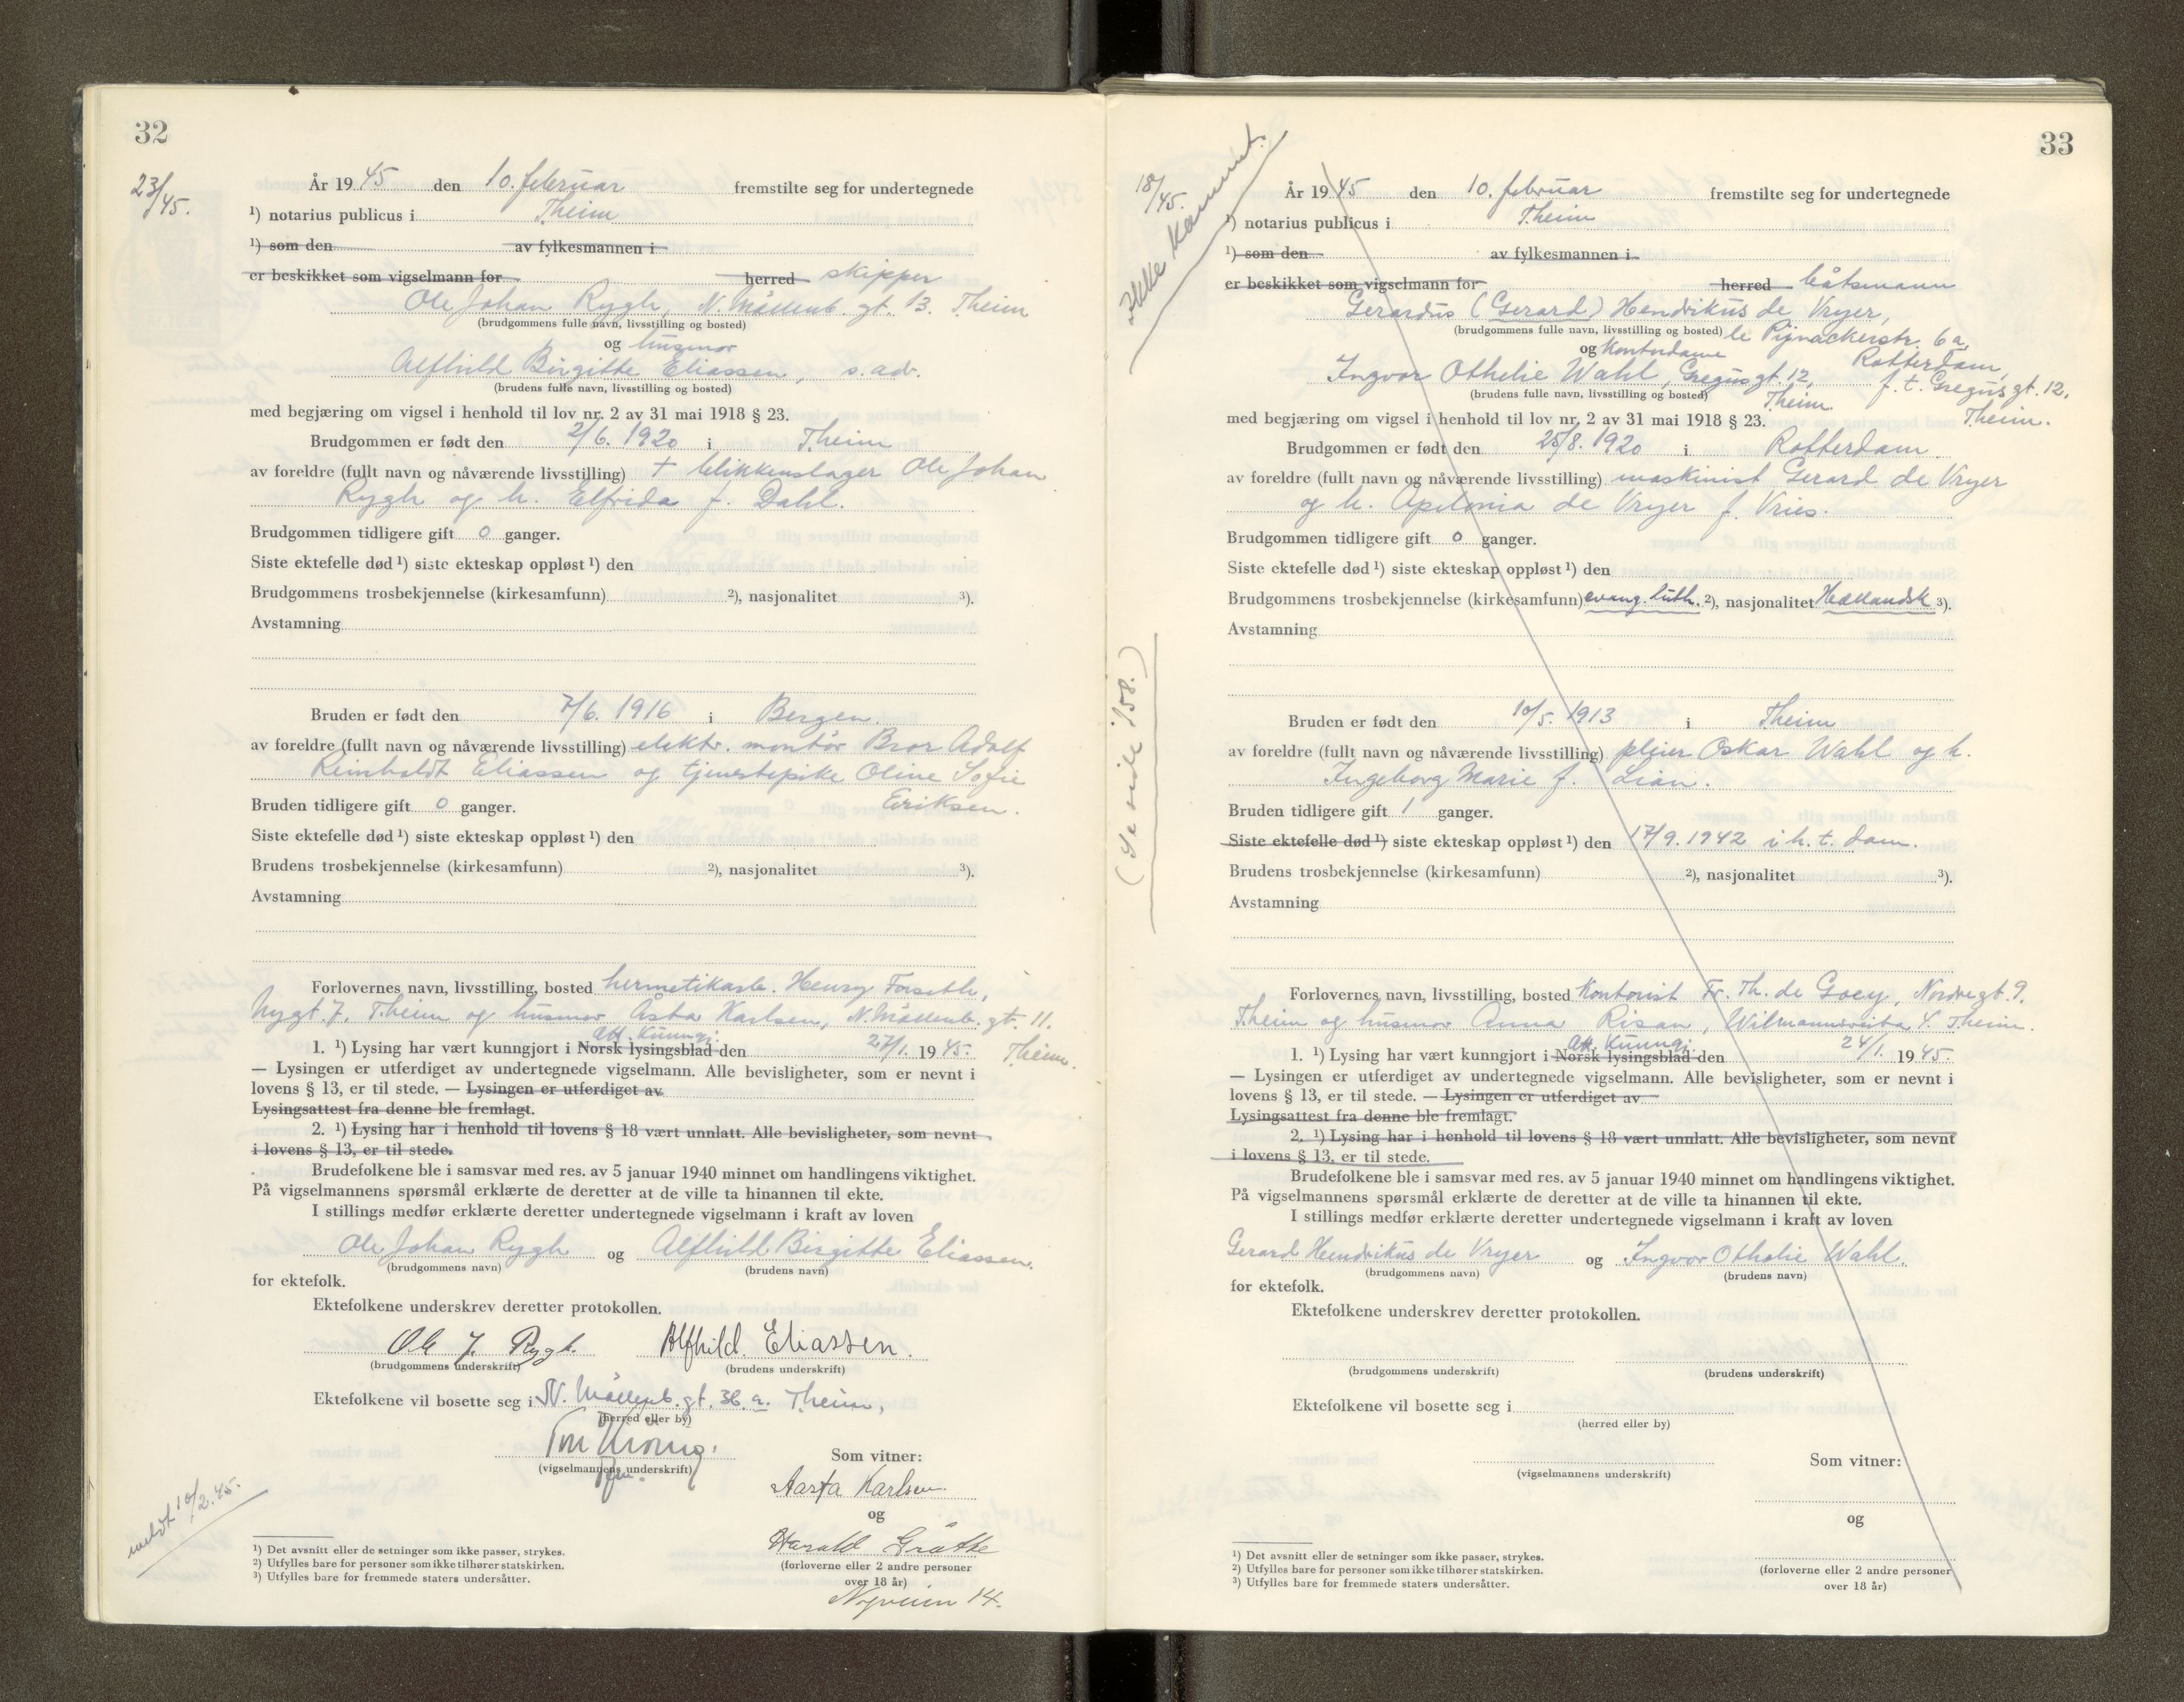 32
23/45.
År 1945 den 10. februar fremstilte seg for undertegnede
¹) notarius publicus i T.heim
¹) som den av fylkesmannen i
er beskikket som vigselmann for herred skipper
Ole Johan Rygh, N. Møllenb. gt. 13. T.heim
(brudgommens fulle navn, livsstilling og bosted)
og husmor
Alfhild Birgitte Eliassen, s. adr.
(brudens fulle navn, livsstilling og bosted)
med begjæring om vigsel i henhold til lov nr. 2 av 31 mai 1918 § 23.
Brudgommen er født den 2/6. 1920 i T.heim
av foreldre (fullt navn og nåværende livsstilling) + blikkenslager Ole Johan
Rygh og h. Elfrida f. Dahl.
Brudgommen tidligere gift 0 ganger.
Siste ektefelle død ¹) siste ekteskap oppløst ¹) den
Brudgommens trosbekjennelse (kirkesamfunn) ²), nasjonalitet ³).
Avstamning
Bruden er født den 7/6. 1916 i Bergen.
av foreldre (fullt navn og nåværende livsstilling) elektr. montør Bror Adolf
Reinholdt Eliassen og tjenestepike Oline Sofie
Eriksen.
Bruden tidligere gift 0 ganger.
Siste ektefelle død ¹) siste ekteskap oppløst ¹) den
Brudens trosbekjennelse (kirkesamfunn) ²), nasjonalitet ³).
Avstamning
Forlovernes navn, livsstilling, bosted hermetikarb. Henry Forseth,
Nygt. 7. T.heim og husmor Åsta Karlsen, N. Møllenb. gt. 11.
T.heim.
att. kunngj.
1. ¹) Lysing har vært kunngjort i Norsk lysingsblad den 27/1. 1945.
— Lysingen er utferdiget av undertegnede vigselmann. Alle bevisligheter, som er nevnt i
lovens § 13, er til stede. — Lysingen er utferdiget av
Lysingsattest fra denne ble fremlagt.
2. ¹) Lysing har i henhold til lovens § 18 vært unnlatt. Alle bevisligheter, som nevnt
i lovens § 13, er til stede.
Brudefolkene ble i samsvar med res. av 5 januar 1940 minnet om handlingens viktighet.
På vigselmannens spørsmål erklærte de deretter at de ville ta hinannen til ekte.
I stillings medfør erklærte deretter undertegnede vigselmann i kraft av loven
Ole Johan Rygh og Alfhild Birgitte Eliassen.
(brudgommens navn) (brudens navn)
for ektefolk.
Ektefolkene underskrev deretter protokollen.
Ole J. Rygh. Alfhild. Eliassen.
(brudgommens underskrift) (brudens underskrift)
Ektefolkene vil bosette seg i N. Møllenb. gt. 36. a. T.heim,
(herred eller by)
(vigselmannens underskrift)
Som vitner:
Aasta Karlsen
og
Harald Gråtte
(forloverne eller 2 andre personer
over 18 år)
Nyveien 14.
meldt 10/2.45.
¹) Det avsnitt eller de setninger som ikke passer, strykes.
²) Utfylles bare for personer som ikke tilhører statskirken.
³) Utfylles bare for fremmede staters undersåtter.
33
18/45.
Ikke kommet.
(Se side 158.)
År 1945 den 10. februar fremstilte seg for undertegnede
¹) notarius publicus i T.heim
¹) som den av fylkesmannen i
er beskikket som vigselmann for herred båtsmann
Gerardus (Gerard) Hendrikus de Vryer,
(brudgommens fulle navn, livsstilling og bosted) le Pijnackerstr. 6a,
Rotterdam,
og Kontordame
f. t. Gregusgt. 12,
T.heim.
Ingvor Othelie Wahl, Gregusgt. 12,
T.heim.
(brudens fulle navn, livsstilling og bosted)
med begjæring om vigsel i henhold til lov nr. 2 av 31 mai 1918 § 23.
Brudgommen er født den 25/8. 1920 i Rotterdam.
av foreldre (fullt navn og nåværende livsstilling) maskinist Gerard de Vryer
og h. Apolonia de Vryer f. Vries.
Brudgommen tidligere gift 0 ganger.
Siste ektefelle død ¹) siste ekteskap oppløst ¹) den
Brudgommens trosbekjennelse (kirkesamfunn) evang. luth. ²), nasjonalitet Hollandsk ³).
Avstamning
Bruden er født den 10/5. 1913 i T.heim
av foreldre (fullt navn og nåværende livsstilling) pleier Oskar Wahl og h.
Ingeborg Marie f. Lian.
Bruden tidligere gift 1 ganger.
Siste ektefelle død ¹) siste ekteskap oppløst ¹) den 17/9. 1942 i h. t. dom.
Brudens trosbekjennelse (kirkesamfunn) ²), nasjonalitet ³).
Avstamning
Forlovernes navn, livsstilling, bosted Kontorist Fr. Th. de Goey, Nordregt. 9.
T.heim og husmor Anna Risan, Wilmannsveita 4. T.heim.
att. kunngj.
1. ¹) Lysing har vært kunngjort i Norsk lysingsblad den 24/1. 1945.
— Lysingen er utferdiget av undertegnede vigselmann. Alle bevisligheter, som er nevnt i
lovens § 13, er til stede. — Lysingen er utferdiget av
Lysingsattest fra denne ble fremlagt.
2. ¹) Lysing har i henhold til lovens § 18 vært unnlatt. Alle bevisligheter, som nevnt
i lovens § 13, er til stede.
Brudefolkene ble i samsvar med res. av 5 januar 1940 minnet om handlingens viktighet.
På vigselmannens spørsmål erklærte de deretter at de ville ta hinannen til ekte.
I stillings medfør erklærte deretter undertegnede vigselmann i kraft av loven
Gerard Hendrikus de Vryer og Ingvor Othelie Wahl.
(brudgommens navn) (brudens navn)
for ektefolk.
Ektefolkene underskrev deretter protokollen.
(brudgommens underskrift) (brudens underskrift)
Ektefolkene vil bosette seg i
(herred eller by)
(vigselmannens underskrift)
Som vitner:
og
(forloverne eller 2 andre personer
over 18 år)
¹) Det avsnitt eller de setninger som ikke passer, strykes.
²) Utfylles bare for personer som ikke tilhører statskirken.
³) Utfylles bare for fremmede staters undersåtter.